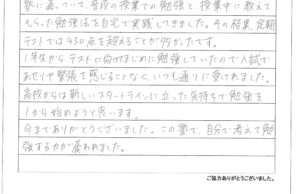 塾に通っていて、普段の授業での勉強と、授業中に教えて
もらった勉強法を自宅で実践してきました。その結果、定期
テストでは450点を超えることが多かったです。
1年生からテストに向けてまじめに勉強していたので入試で
あせりや緊張を感じることなく、いつも通りに受けれました。
高校からは新しいスタートラインに立った気持ちで勉強を
1から始めようと思います。
今までありがとうございました。この塾で、自分で考えて勉
強する力が養われました。
ご協力ありがとうございました。